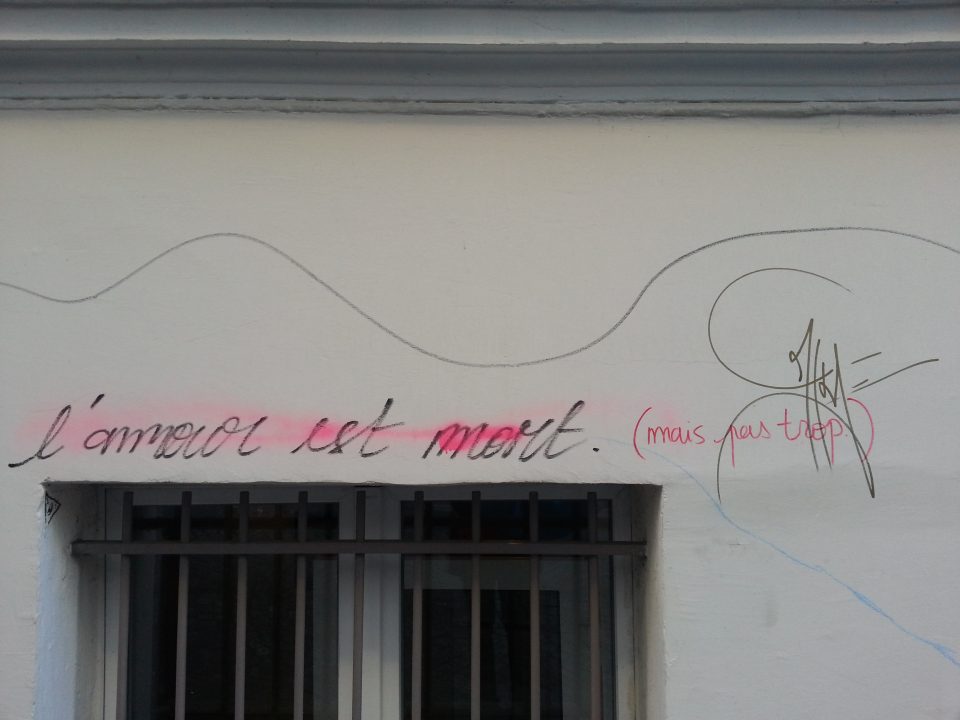 l'amour est mort. (mais pas trop.)